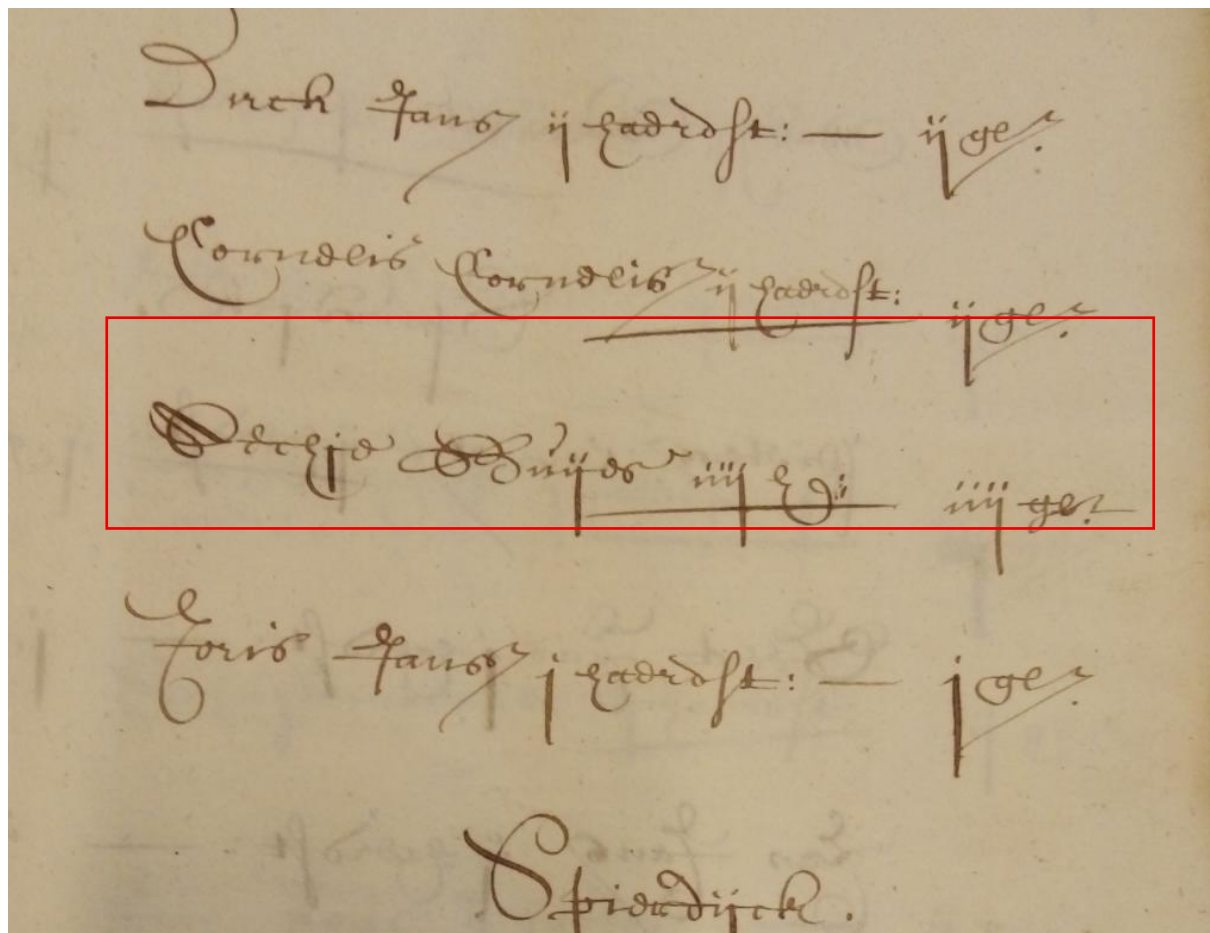 Dirck Jans ij haerdst: — ij gl.
Cornelis Cornelis ij haerdst: ij gl.
Buijes iiij h iiij gl.
Joris Janss j haerdst: — j gl.
Spierdijck.